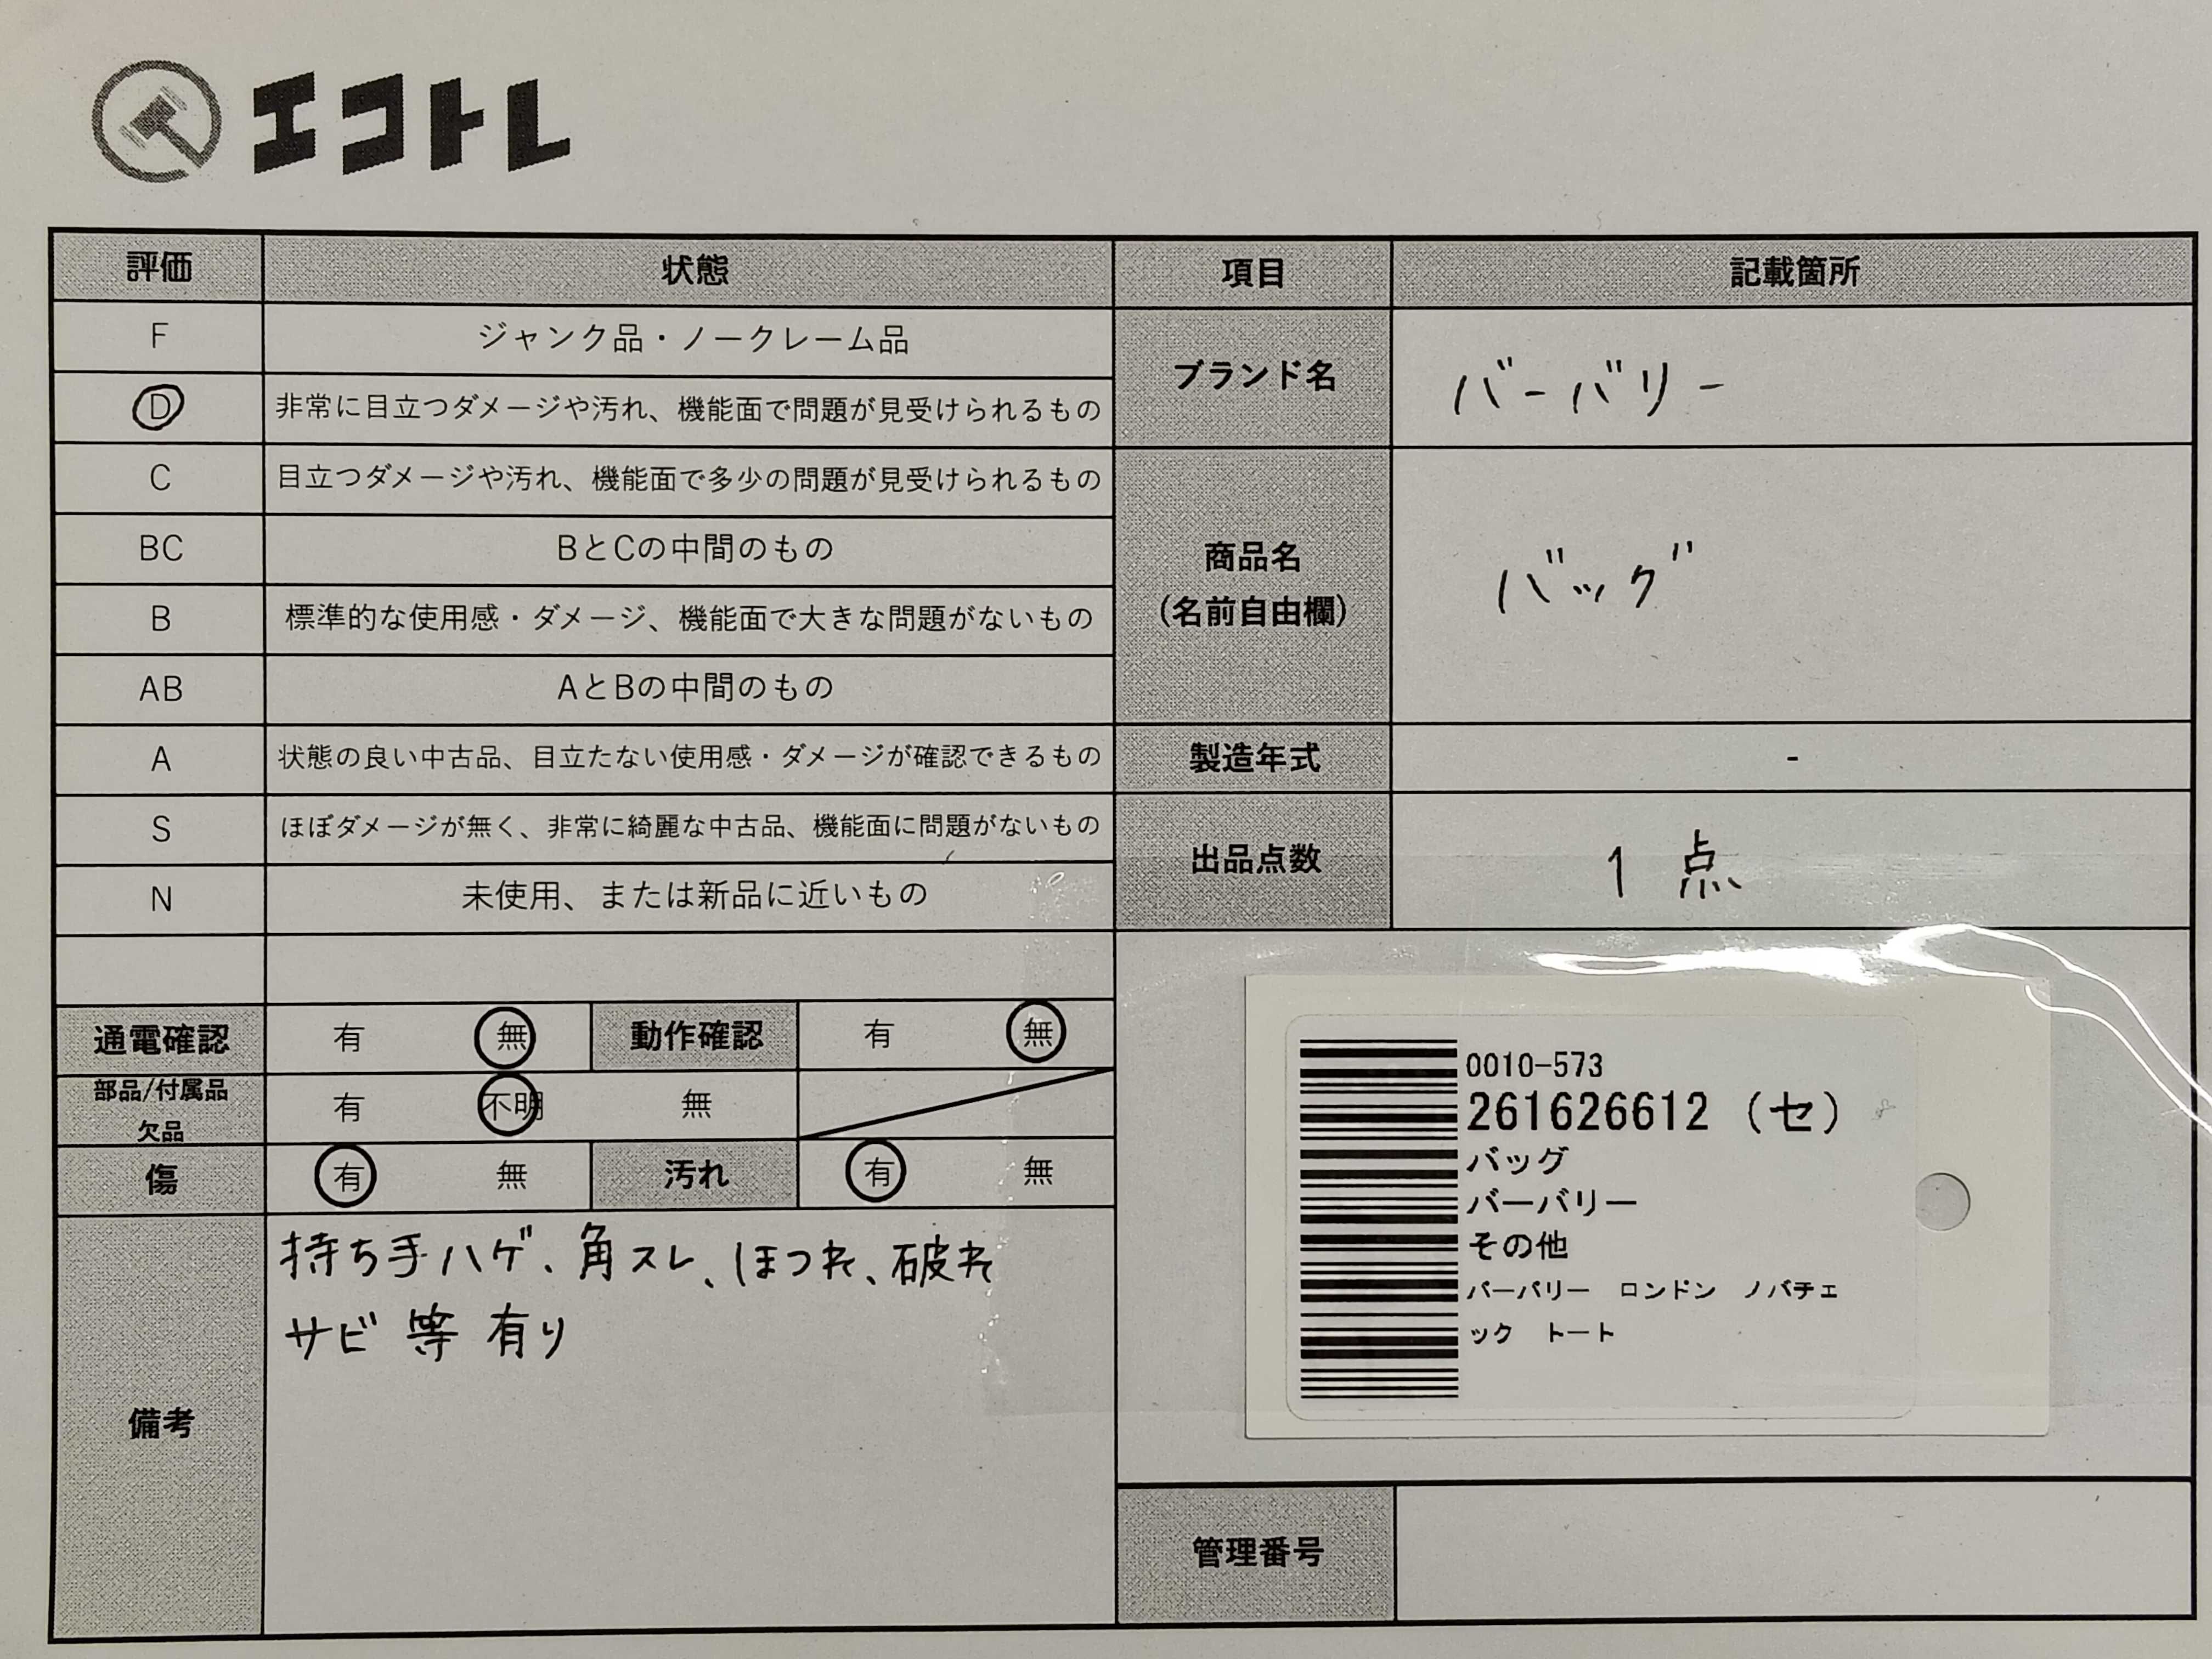 エコトレ
評価 状態 項目 記載箇所
F ジャンク品・ノークレーム品
D 非常に目立つダメージや汚れ、機能面で問題が見受けられるもの
C 目立つダメージや汚れ、機能面で多少の問題が見受けられるもの
BC BとCの中間のもの
B 標準的な使用感・ダメージ、機能面で大きな問題がないもの
AB AとBの中間のもの
A 状態の良い中古品、目立たない使用感・ダメージが確認できるもの
S ほぼダメージが無く、非常に綺麗な中古品、機能面に問題がないもの
N 未使用、または新品に近いもの
ブランド名 バーバリー
商品名
(名前自由欄) バッグ
製造年式 -
出品点数 1 点
通電確認 有 無 動作確認 有 無
部品/付属品
欠品 有 不明 無
傷 有 無 汚れ 有 無
備考
持ち手ハゲ、角スレ、ほつれ、破れ
サビ 等 有り
0010-573
261626612 (セ)
バッグ
バーバリー
その他
バーバリー ロンドン ノバチェ
ック トート
管理番号